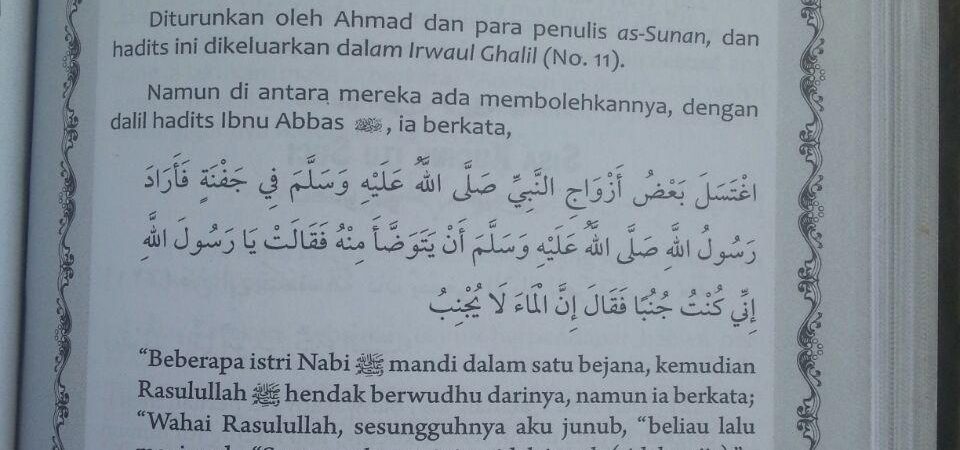 Diturunkan oleh Ahmad dan para penulis as-Sunan, dan
hadits ini dikeluarkan dalam Irwaul Ghalil (No. 11).
Namun di antara mereka ada membolehkannya, dengan
dalil hadits Ibnu Abbas , ia berkata,
اغْتَسَلَ بَعْضُ أَزْوَاجِ النَّبِيِّ صَلَّى اللَّهُ عَلَيْهِ وَسَلَّمَ فِي جَفْنَةٍ فَأَرَادَ
رَسُولُ اللَّهِ صَلَّى اللَّهُ عَلَيْهِ وَسَلَّمَ أَنْ يَتَوَضَّأَ مِنْهُ فَقَالَتْ يَا رَسُولَ اللَّهِ
إِنِّي كُنْتُ جُنُبًا فَقَالَ إِنَّ الْمَاءَ لَا يُجْنِبُ
“Beberapa istri Nabi ﷺ mandi dalam satu bejana, kemudian
Rasulullah ﷺ hendak berwudhu darinya, namun ia berkata;
“Wahai Rasulullah, sesungguhnya aku junub, “beliau lalu